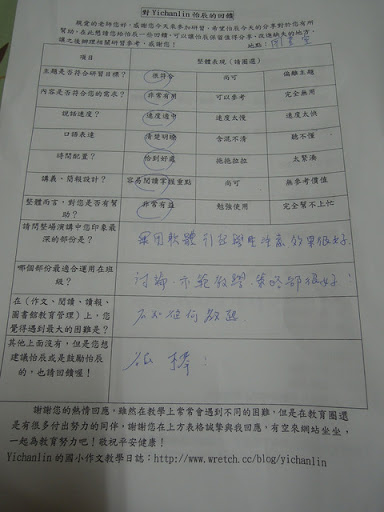 對Yichanlin怡辰的回饋
親愛的老師您好，感謝您今天來參加研習，希望怡辰今天的分享對於您有所
幫助，在此想請您給予一些回饋，可以讓怡辰保留值得分享、改進缺失的地方，
讓之後辦理相關研習參考，感謝您！ 地點：
項目 整體表現（請圈選）
主題是否符合研習目標？ 很符合 尚可 偏離主題
內容是否符合您的需求？ 非常有用 可以參考 完全無用
說話速度？ 速度適中 速度太慢 速度太快
口語表達 清楚明瞭 含混不清 聽不懂
時間配置？ 恰到好處 拖拖拉拉 太緊湊
講義、簡報設計？ 容易閱讀掌握重點 尚可 無參考價值
整體而言，對您是否有幫
助？ 非常有益 勉強使用 完全幫不上忙
請問整場演講中您印象最
深的部份是？ 運用軟體引起學生注意的單很好
哪個部份最適合運用在班
級？ 討論、示範教學、策略都很好！
在（作文、閱讀、讀報、
圖書館教育管理）上，您
覺得遇到最大的困難是？ 不知
其他上面沒有，但是您想
建議怡辰或是鼓勵怡辰
的，也請回饋喔！ 很棒！
謝謝您的熱情回應，雖然在教學上常常會遇到不同的困難，但是在教育圈還
是有很多付出努力的同伴，謝謝您在上方表格誠摯與我回應，有空來網站坐坐，
一起為教育努力吧！敬祝平安健康！
Yichanlin的國小作文教學日誌：http://www.wretch.cc/blog/yichanlin